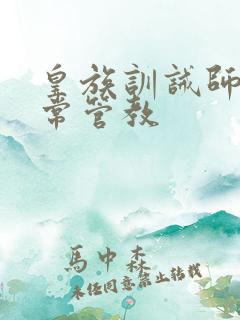 皇族訓誡師
常管教
馬中森
未经同意禁止转载